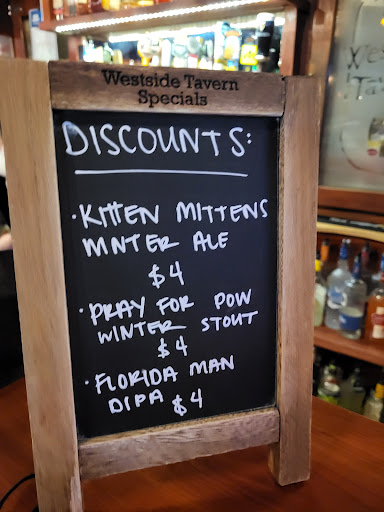 Westside Tavern
Specials
DISCOUNTS:
· KITTEN MITTENS
WINTER ALE
$4
· PRAY FOR POW
WINTER STOUT
$4
· FLORIDA MAN
DIPA $4